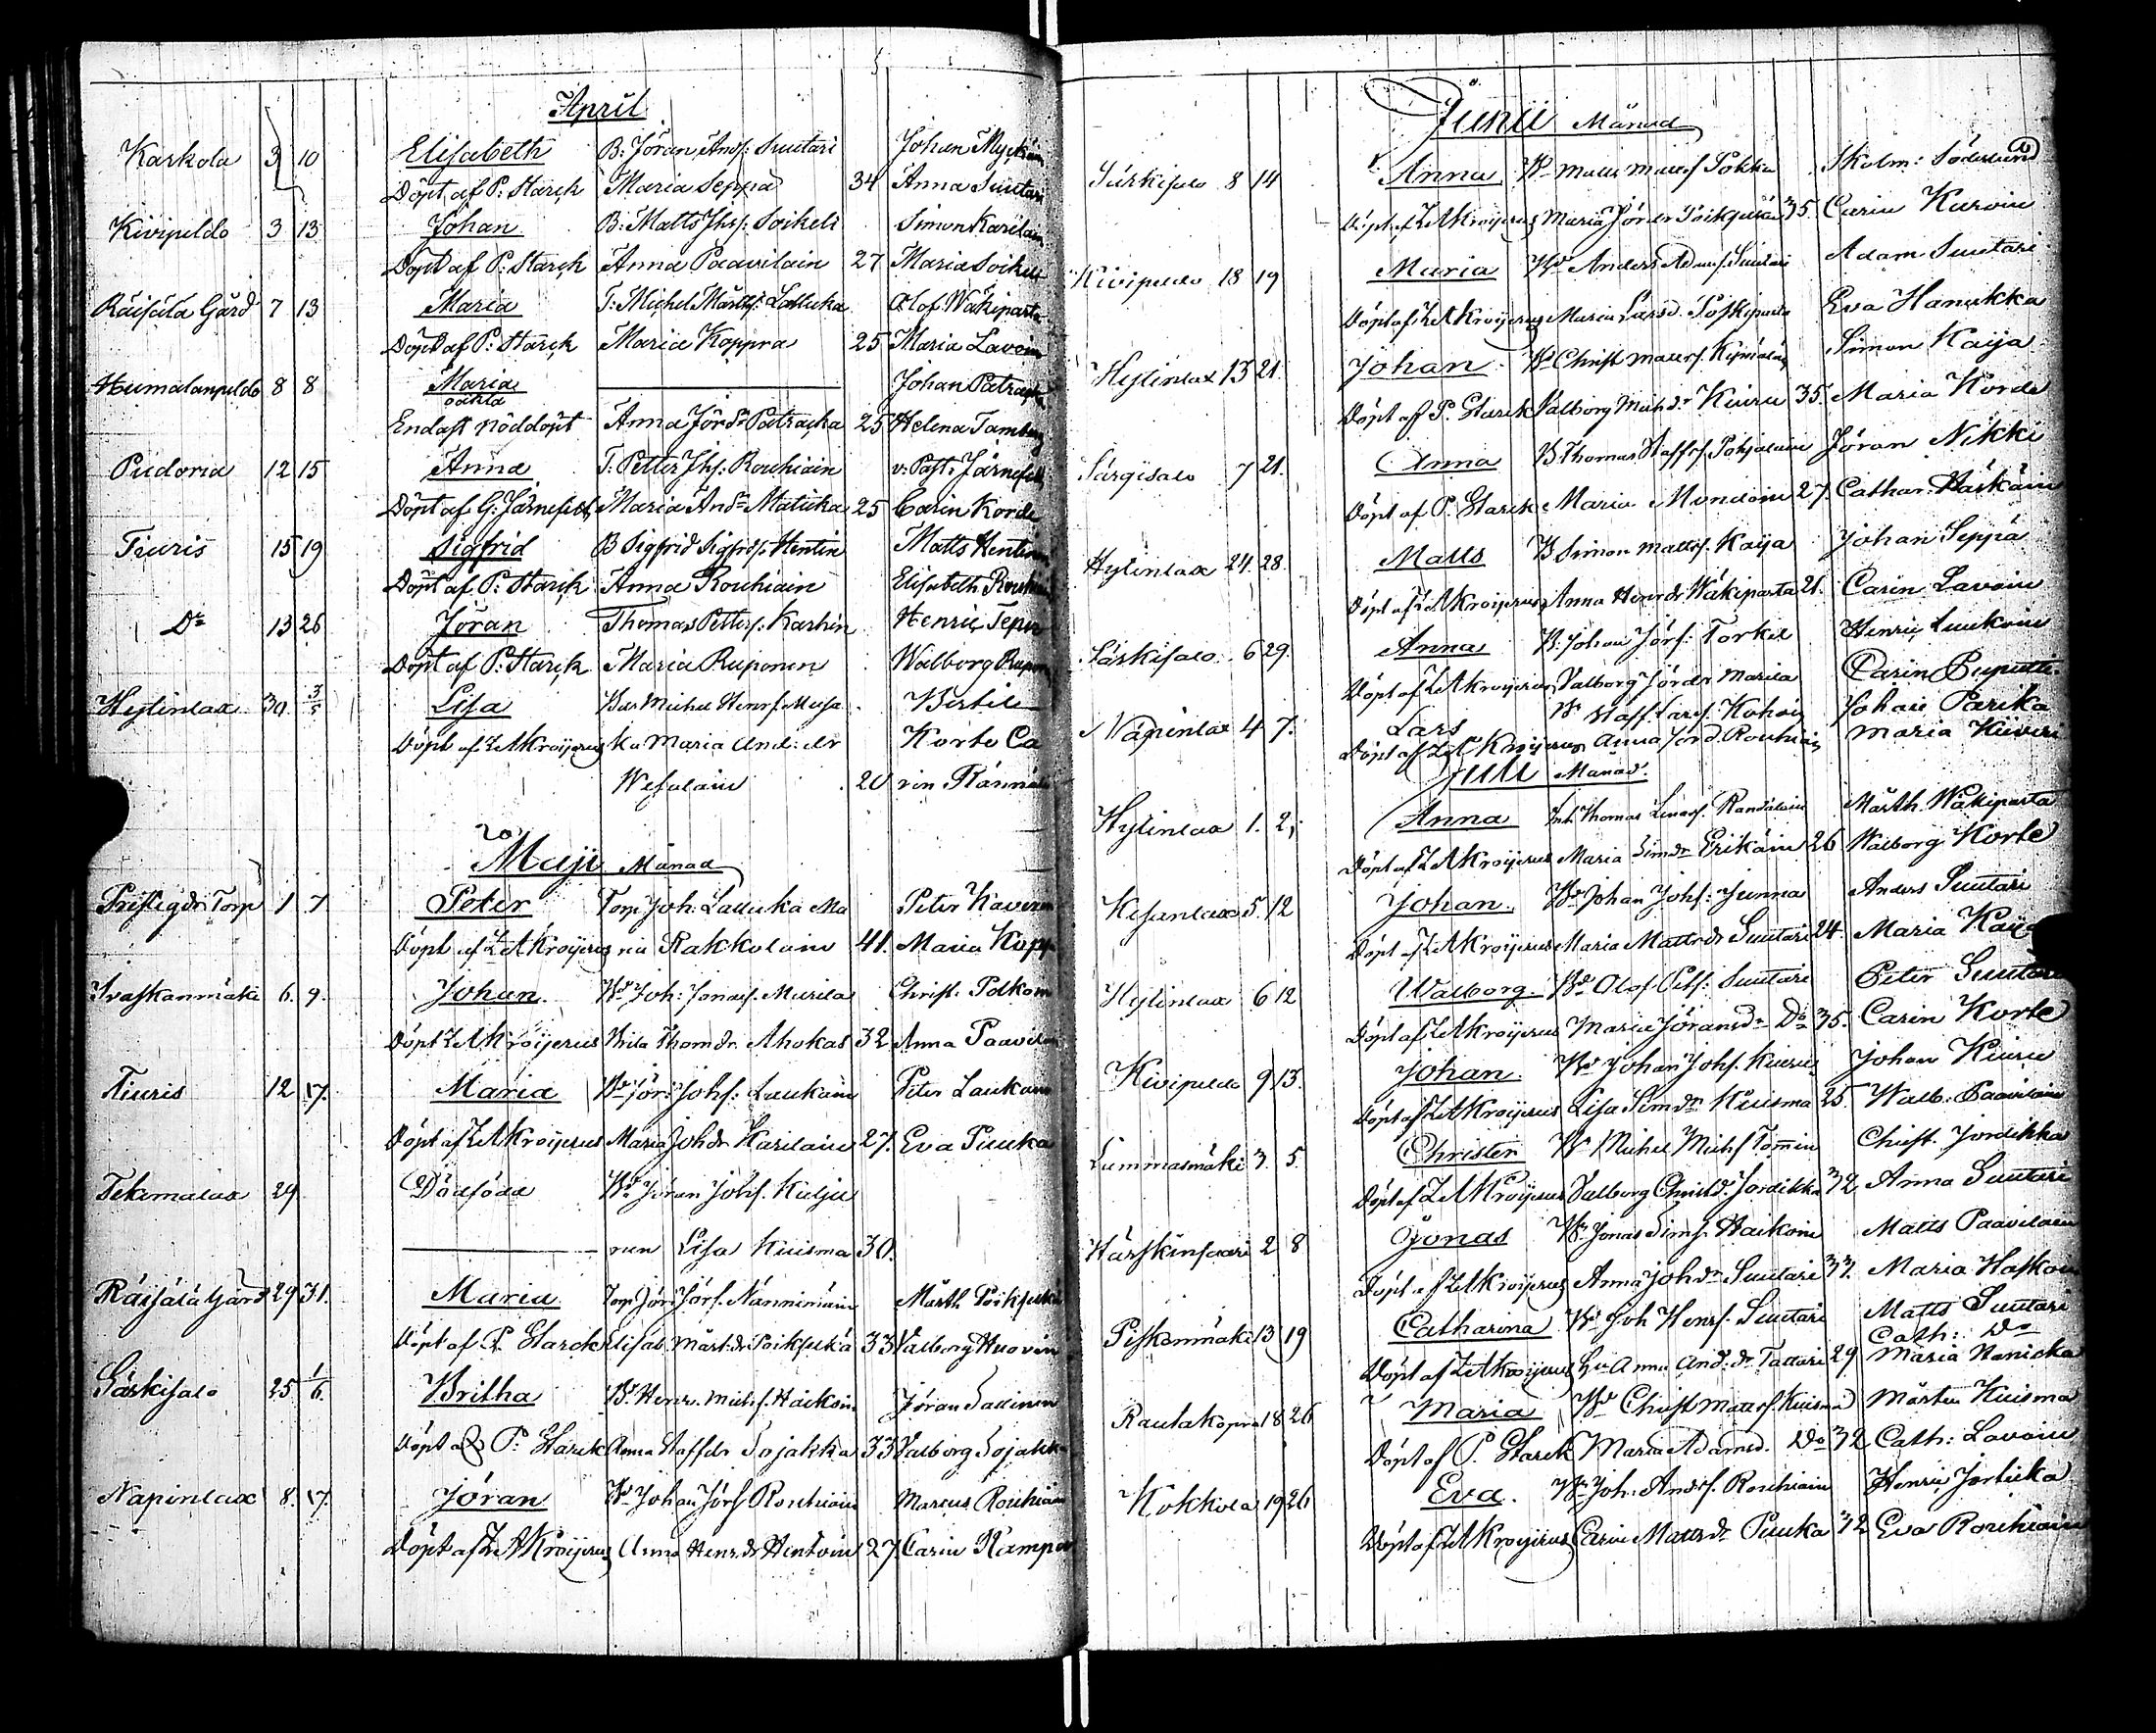 April
Karkola 3 10 Elisabeth B: Jöran Ands: Suutari Johan Myckän
Döpt af P: Starck Maria Seppä 34 Anna Suutari
Kivipeldo 3 13 Johan B: Matts Jhs: Soikeli Simon Karilain
Döpt af P: Starck Anna Paavilain 27 Maria Soikeli
Räisälä Gård 7 13 Maria T: Michel Mårts: Lallucka Olof Wäkiparta
Döpt af P: Starck Maria Koppra 25 Maria Lavoin
Humalanpeldo 8 8 Maria Johan Patracka
oächta
Endast nöddöpt Anna Jörsdr Patracka 25 Helena Tamberg
Pudoria 12 15 Anna T: Petter Jhs: Rouhiain v: Past: Järnefelt
Döpt af G: Järnefelt Maria Andsdr Matucka 25 Carin Korde
Tiuris 15 19 Sigfrid B Sigfrid Sigfrds: Hentin Matts Hentin
Döpt af P: Starck Anna Rouhiain Elisabeth Rouhiain
Do 13 26 Jöran Thomas Petters: Karhin Henric
Döpt af P: Starck Maria Ruponen Walborg Rupon
Hytinlax 30 3/5 Lisa Michel Henrs Musa Bertil
Döpt af Z A Kröijerus ka Maria And: dr Korte Ca
Wesalain 20 rin Kännäl
Maji Månad
Torp 1 7 Peter Torp Joh: Lallucka Ma Peter Kavonen
Döpt af Z A Kröijerus ria Rakkolain 41. Maria Kopp
Ivaskanmäki 6. 9. Johan Bd Joh: Jonas Murila Christ. Polkon
Döpt Z A Kröijerus Thomdr Ahokas 32 Anna Paavilain
Tiuris 12 17. Maria Bd Jör: Johs: Laukain Peter Laukain
Döpt af Z A Kröijerus Maria Johdr Karilain 27. Eva Puuka
Tekemalax 29 Dödföda Bd Jöran Johs. Kulju
nen Lisa Kuisma 30.
Räisälä Gård 29 31. Maria Torp Jör: Jörs. Männimäin Mårth Poikselkä
Döpt af P. Starck Elisab. Mårt.dr Poikselkä 33 Valborg Huovin
Särkisalo 25 1/6. Britha Bd Henr. Michs. Haikoin Jöran Sallinen
Döpt af P: Starck Anna Staffdr Sojakka 33 Valborg Sojakka
Näpinlax 8. 17. Jöran Bd Johan Jörs Rouhiain Marcus Rouhiain
Döpt af Z A Kröijerus Anna Henr.dr Hintoin 27 Carin Kämper
Junii Månad
Särkisalo 8 14 Anna Bd Matts Matts Pokka Skolm: Söderlund
Döpt af Z A Kröijerus Maria Jörsdr 35. Carin Karvin
Kivipeldo 18 19 Maria Bd Anders Adams. Suutari Adam Suutari
Döpt af Z A Kröijerus Maria Larsd. Eva Hanukka
Hytinlax 13 21. Johan Bd Christ Matts. Kymäläin Simon Kaija
Döpt af P. Starck Valborg Michdr Kuiru 35. Maria Korde
Särgisalo 7 21. Anna B Thomas Staffs. Pohjalain Jöran Nikki
Döpt af P. Starck Maria Mondoin 27. Cathar. Häskäin
Hytinlax 24. 28. Matts B Simon Matts. Kaija Johan Seppä
Döpt af Z A Kröijerus Anna Henrdr Wäkiparta 21. Carin Lavoin
Särkisalo 6 29. Anna B. Johan Jörs: Torkel Henric Luukoin
Döpt af Z A Kröijerus Valborg Jörsdr Marila Carin Reputti
Näpinlax 4 7. Lars Bd Staff. Lars. Kohoi Johan Parika
Döpt af Z A Kröijerus Anna Jörd. Rouhiain Maria Kiiveri
Julii Månad.
Hytinlax 1. 2. Anna Thomas Linus. Randalain Mårth. Wäkiparta
Döpt af Z A Kröijerus Maria Simdr Erikäin 26 Walborg Korte
Kesanlax 5. 12 Johan. Bd Johan Johs: Junna Anders Suutari
Döpt af Z A Kröijerus Maria Mattsdr Suutari 24. Maria Kaija
Hytinlax 6 12 Walborg. Bd Olof Pets: Suutari Peter Suutari
Döpt af Z A Kröijerus Maria Jöransdr Do 35. Carin Korte
Kivipeldo 9 13. Johan. Bd Johan Johs. Kuiru Johan Kuiru
Döpt af Z A Kröijerus Lisa Simdr Kuisma 25. Walb: Paavilain
Lummasmäki 3. 5. Christer Bd Michel Michs Tommin Christ. Jordikka
Döpt af Z A Kröijerus Valborg Christd. Jordikka 32 Anna Suutari
Härskinsaari 2 8 Jonas Bd Jonas Sims. Haikoin Matts Paavilain
Döpt af Z A Kröijerus Anna Johdr Suutari 33. Maria Haskoin
Piskanmäki 13 19 Catharina Bd Joh Henrs. Suutari Matts Suutari
Cath: Do
Döpt af Z A Kröijerus Anna And: dr Tattari 29 Maria Hanicka
Rautakopra 18 26 Maria Bd Christ Matts. Kuisma Mårten Kuisma
Döpt af P. Starck Maria Adamsd. Do 32 Cath: Lavoin
Kokkola 19 26 Eva. Bd Joh. Ands. Rouhiain Henric Jorticka
Döpt af Z A Kröijerus Carin Mattsdr Puuka 32 Eva Rouhiain